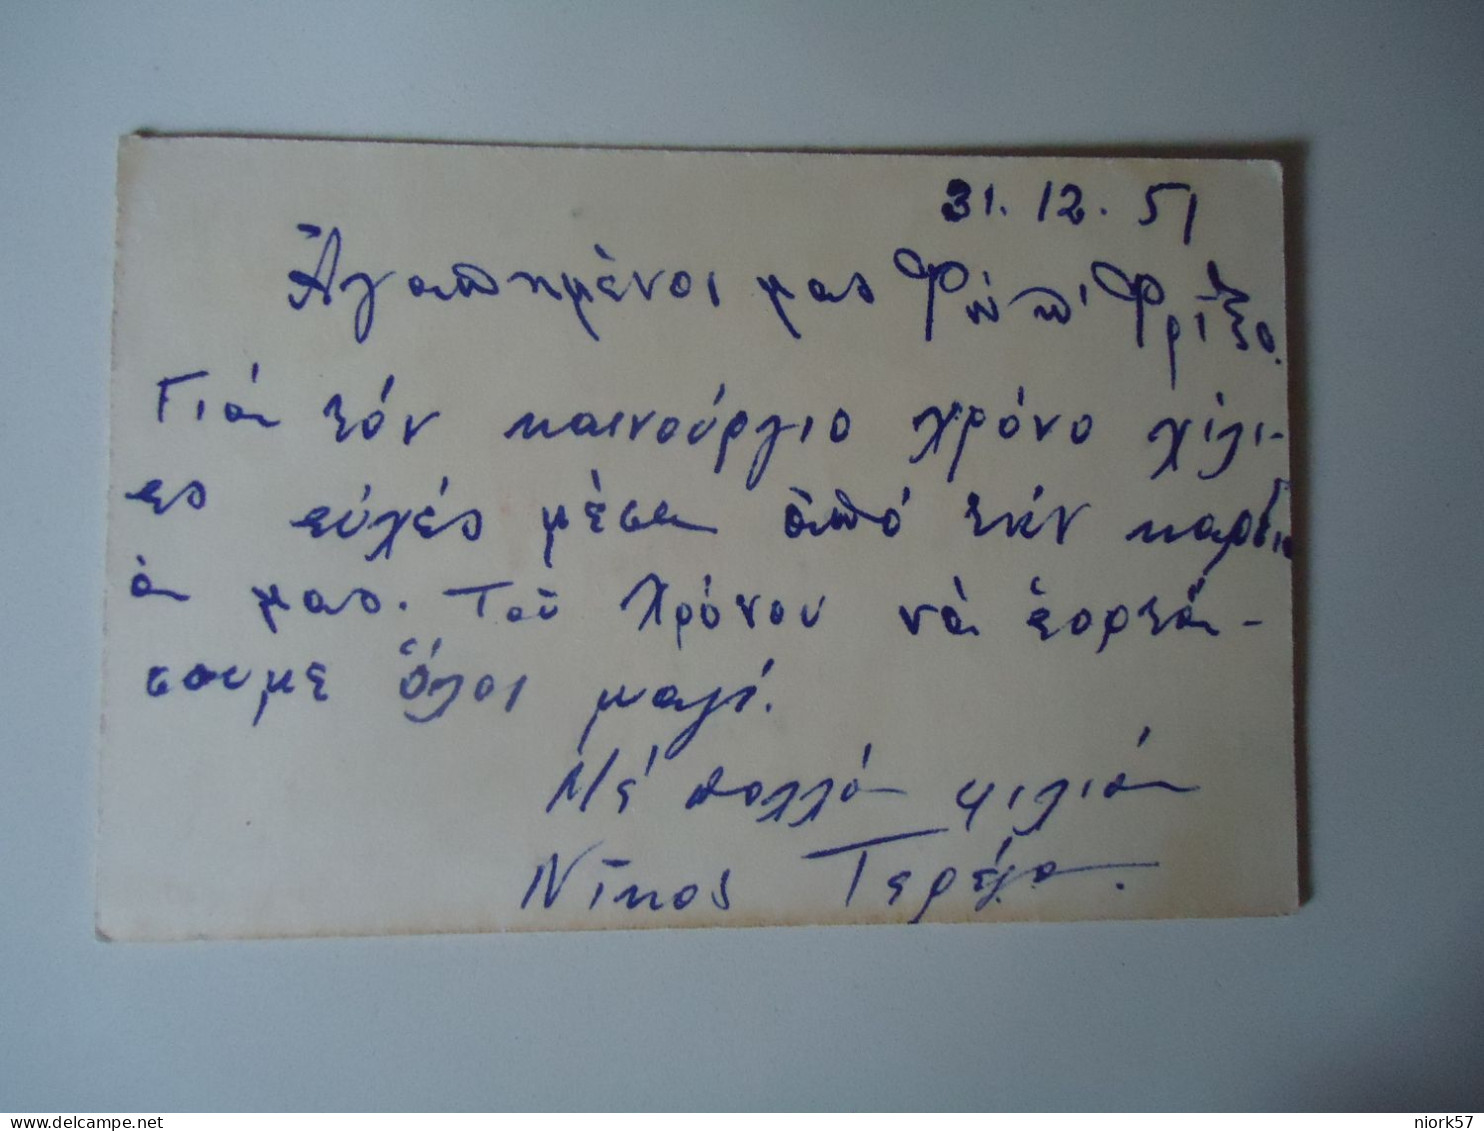 31. 12. 51
Ἀγαπημένοι μας Φρίξο.
Γιά τόν καινούργιο χρόνο χίλι-
ες εὐχές μέσα ἀπό τήν καρδι
ά μας. Τοῦ χρόνου νά ἑορτά-
σουμε ὅλοι μαζί.
Μέ πολλά φιλιά
Νῖκος Τερέζα.
niork57